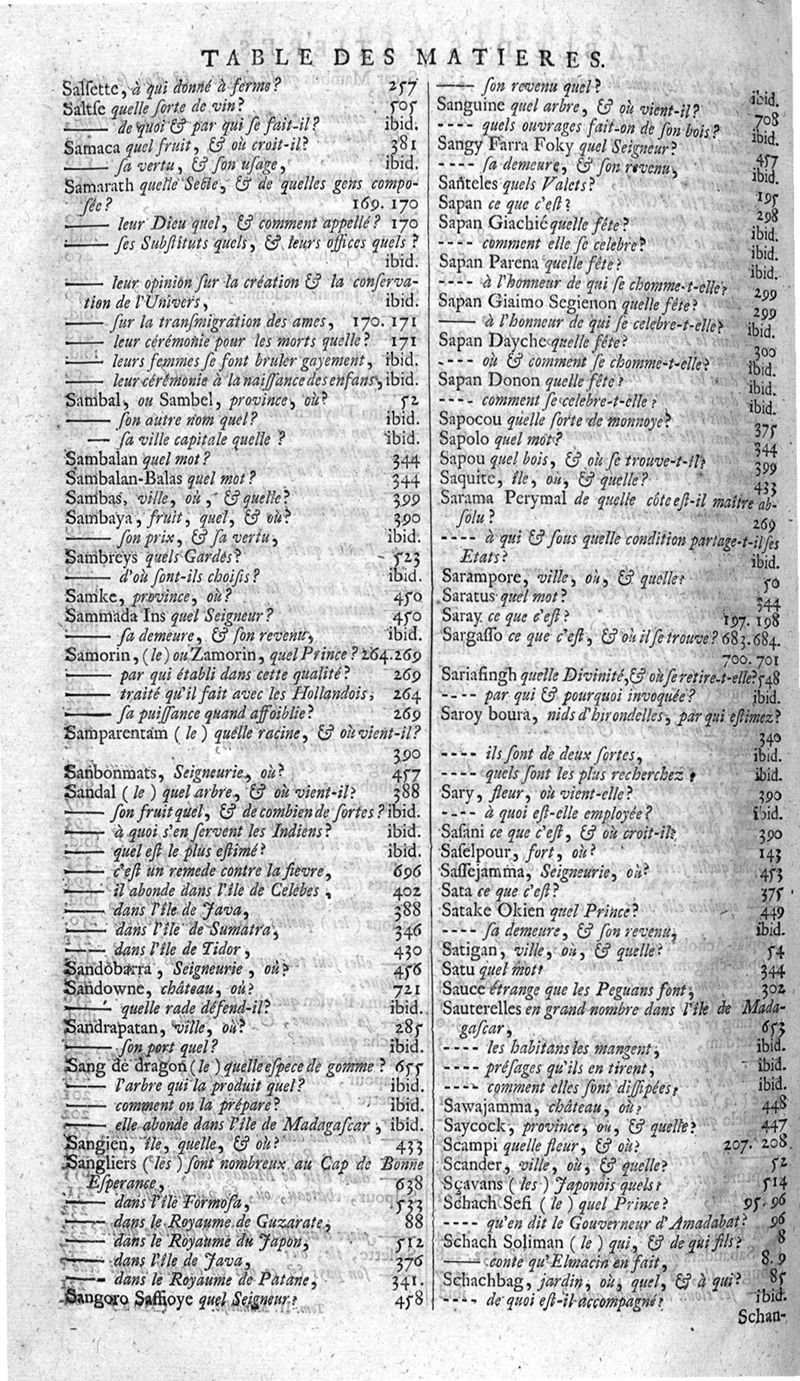 TABLE DES MATIERES.
Salsette, à qui donné à ferme? 257
Saltse quelle sorte de vin? 505
—— de quoi & par qui se fait-il? ibid.
Samaca quel fruit, & où croit-il? 381
—— sa vertu, & son usage, ibid.
Samarath quelle Secte, & de quelles gens compo-
sée? 169. 170
—— leur Dieu quel, & comment appellé? 170
—— ses Substituts quels, & leurs offices quels?
ibid.
—— leur opinion sur la création & la conserva-
tion de l'Univers, ibid.
—— sur la transmigration des ames, 170. 171
—— leur cérémonie pour les morts quelle? 171
—— leurs femmes se font bruler gayement, ibid.
—— leur cérémonie à la naissance des enfans, ibid.
Sambal, ou Sambel, province, où? 52
—— son autre nom quel? ibid.
— sa ville capitale quelle? ibid.
Sambalan quel mot? 344
Sambalan-Balas quel mot? 344
Sambas, ville, où, & quelle? 399
Sambaya, fruit, quel, & où? 390
—— son prix, & sa vertu, ibid.
Sambreys quels Gardes? 523
—— d'où sont-ils choisis? ibid.
Samke, province, où? 450
Sammada Ins quel Seigneur? 450
—— sa demeure, & son revenu, ibid.
Samorin, (le) ou Zamorin, quel Prince? 264. 269
—— par qui établi dans cette qualité? 269
—— traité qu'il fait avec les Hollandois, 264
—— sa puissance quand affoiblie? 269
Samparentam (le) quelle racine, & où vient-il?
390
Sanbonmats, Seigneurie, où? 457
Sandal (le) quel arbre, & où vient-il? 388
—— son fruit quel, & de combien de sortes? ibid.
—— à quoi s'en servent les Indiens? ibid.
—— quel est le plus estimé? ibid.
—— c'est un remede contre la fievre, 696
—— il abonde dans l'île de Celebes, 402
—— dans l'île de Java, 388
—— dans l'île de Sumatra, 346
—— dans l'île de Tidor, 430
Sandobarra, Seigneurie, où? 456
Sandowne, château, où? 721
—— quelle rade défend-il? ibid.
Sandrapatan, ville, où? 285
—— son port quel? ibid.
Sang de dragon (le) quelle espece de gomme? 655
—— l'arbre qui la produit quel? ibid.
—— comment on la prépare? ibid.
—— elle abonde dans l'île de Madagascar, ibid.
Sangien, île, quelle, & où? 433
Sangliers (les) sont nombreux au Cap de Bonne
Esperance, 638
—— dans l'île Formosa, 533
—— dans le Royaume de Guzarate, 88
—— dans le Royaume du Japon, 512
—— dans l'île de Java, 376
—— dans le Royaume de Patane, 341.
Sangoro Saffioye quel Seigneur? 458
—— son revenu quel? ibid.
Sanguine quel arbre, & où vient-il? 708
---- quels ouvrages fait-on de son bois? ibid.
Sangy Farra Foky quel Seigneur? 457
---- sa demeure, & son revenu, ibid.
Santeles quels Valets? 195
Sapan ce que c'est? 298
Sapan Giachié quelle fête? ibid.
---- comment elle se celebre? ibid.
Sapan Parena quelle fête? ibid.
---- à l'honneur de qui se chomme-t-elle? 299
Sapan Giaimo Segienon quelle fête? 299
—— à l'honneur de qui se celebre-t-elle? ibid.
Sapan Dayche quelle fête? 300
---- où & comment se chomme-t-elle? ibid.
Sapan Donon quelle fête? ibid.
---- comment se celebre-t-elle? ibid.
Sapocou quelle sorte de monnoye? 375
Sapolo quel mot? 344
Sapou quel bois, & où se trouve-t-il? 399
Saquite, île, où, & quelle? 433
Sarama Perymal de quelle côte est-il maître ab-
solu? 269
---- à qui & sous quelle condition partage-t-il ses
Etats? ibid.
Sarampore, ville, où, & quelle? 50
Saratus quel mot? 344
Saray ce que c'est? 197. 198
Sargasso ce que c'est, & où il se trouve? 683. 684.
700. 701
Sariasingh quelle Divinité, & où se retire-t-elle? 548
---- par qui & pourquoi invoquée? ibid.
Saroy boura, nids d'hirondelles, par qui estimez?
340
---- ils sont de deux sortes, ibid.
---- quels sont les plus recherchez? ibid.
Sary, fleur, où vient-elle? 390
---- à quoi est-elle employée? ibid.
Sasani ce que c'est, & où croit-il? 390
Saselpour, fort, où? 143
Sassejamma, Seigneurie, où? 453
Sata ce que c'est? 375
Satake Okien quel Prince? 449
---- sa demeure, & son revenu, ibid.
Satigan, ville, où, & quelle? 54
Satu quel mot? 344
Sauce étrange que les Peguans font, 302
Sauterelles en grand nombre dans l'île de Mada-
gascar, 653
---- les habitans les mangent, ibid.
---- présages qu'ils en tirent, ibid.
---- comment elles sont dissipées? ibid.
Sawajamma, château, où? 448
Saycock, province, où, & quelle? 447
Scampi quelle fleur, & où? 207. 208.
Scander, ville, où, & quelle? 52
Sçavans (les) Japonois quels? 514
Schach Sefi (le) quel Prince? 95. 96
---- qu'en dit le Gouverneur d'Amadabat? 96
Schach Soliman (le) qui, & de qui fils? 8
—— conte qu'Elmacin en fait, 8. 9
Schachbag, jardin, où, quel, & à qui? 85
---- de quoi est-il accompagné? ibid.
Schan-